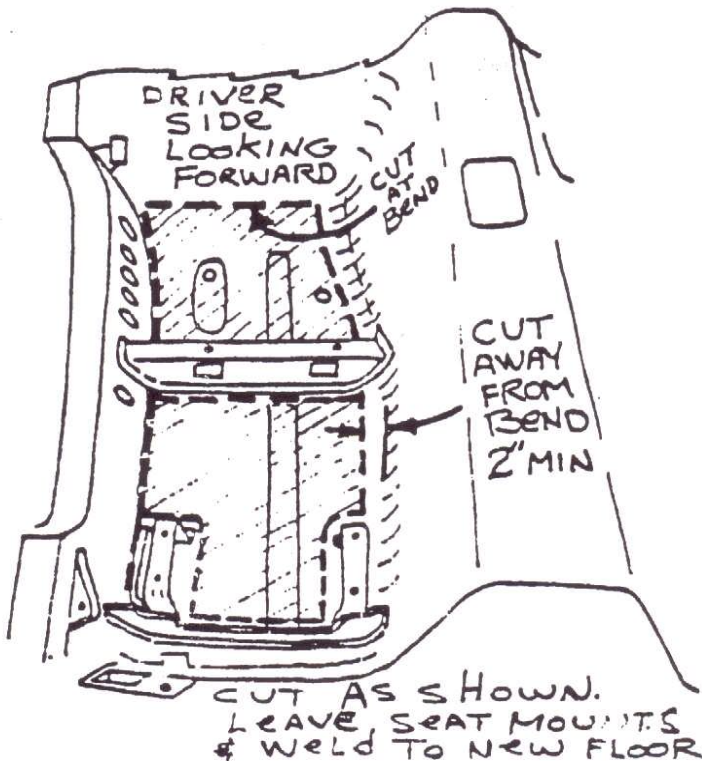 DRIVER
SIDE
LOOKING
FORWARD
CUT
AT
BEND
CUT
AWAY
FROM
BEND
2" MIN
CUT AS SHOWN.
LEAVE SEAT MOUNTS
& WELD TO NEW FLOOR